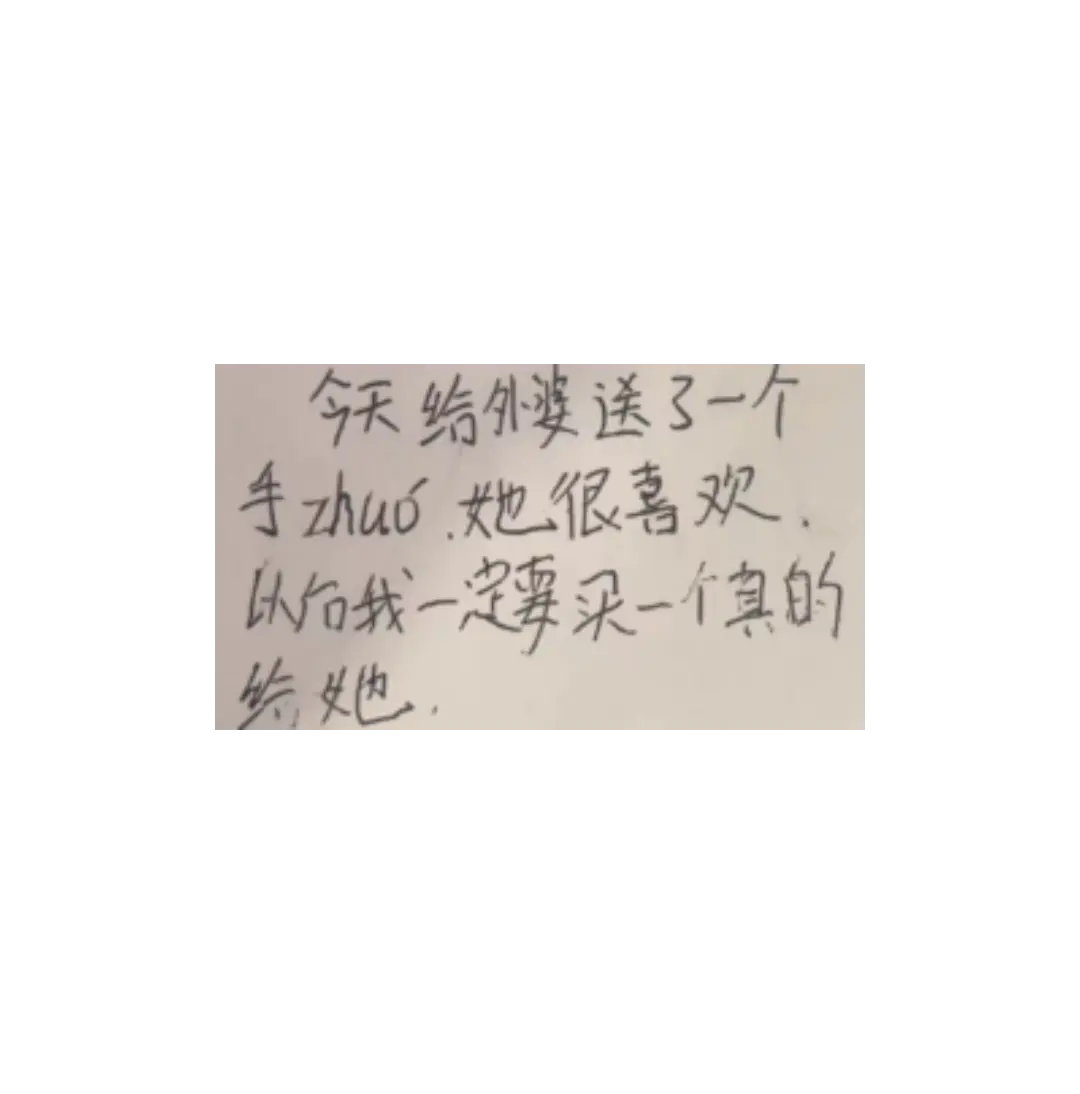 今天给外婆送了一个
手zhuó.她很喜欢.
以后我一定要买一个真的
给她.